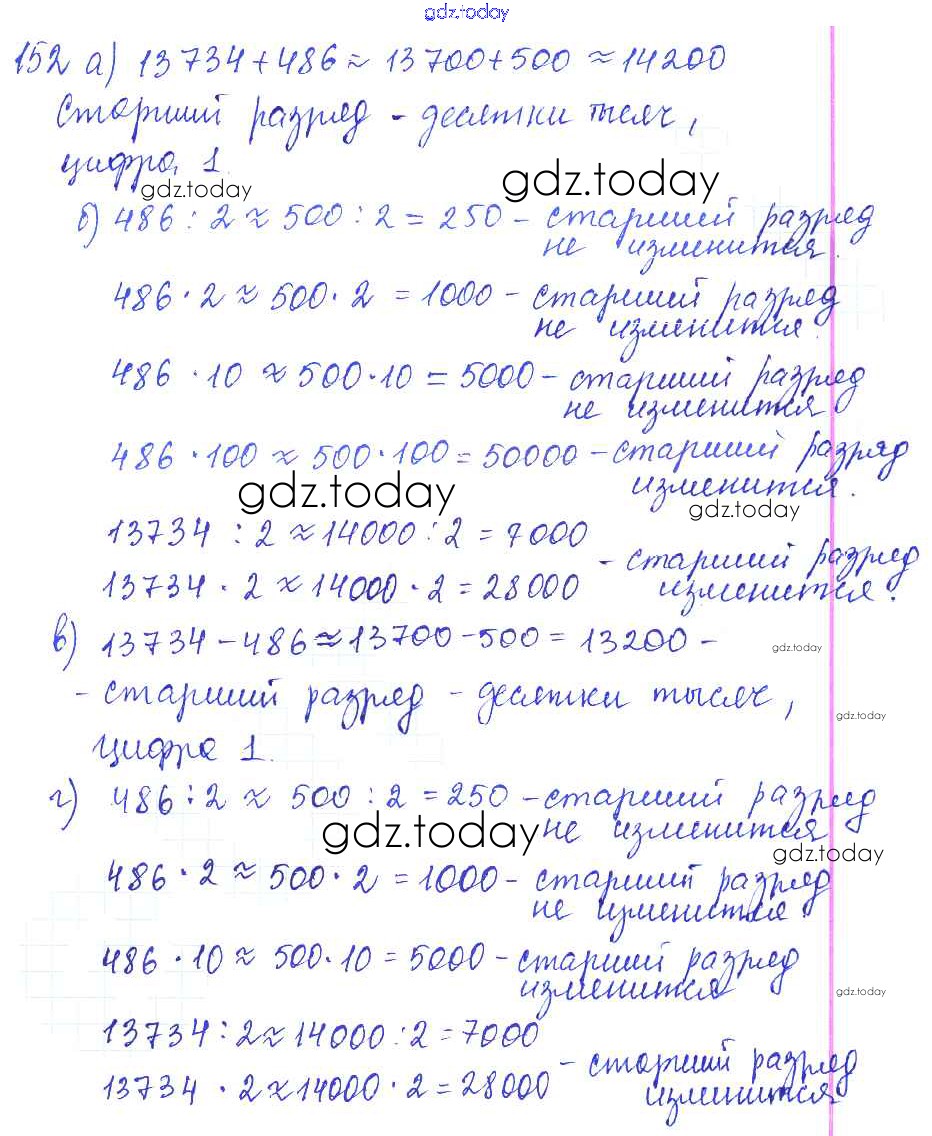 gdz.today
152 а) 13734+486≈13700+500≈14200
Старший разряд - десятки тысяч,
цифра 1.
gdz.today
gdz.today
б) 486:2≈500:2=250 - старший разряд
не изменится.
486·2≈500·2=1000 - старший разряд
не изменится.
486·10≈500·10=5000 - старший разряд
не изменится
486·100≈500·100=50000 - старший разряд
изменится.
gdz.today
gdz.today
13734:2≈14000:2=7000
13734·2≈14000·2=28000 - старший разряд
изменится.
в) 13734-486≈13700-500=13200 -
gdz.today
- старший разряд - десятки тысяч,
gdz.today
цифра 1.
г) 486:2≈500:2=250 - старший разряд
не изменится
gdz.today
gdz.today
486·2≈500·2=1000 - старший разряд
не изменится.
486·10≈500·10=5000 - старший разряд
изменится
gdz.today
13734:2≈14000:2=7000
13734·2≈14000·2=28000 - старший разряд
изменится